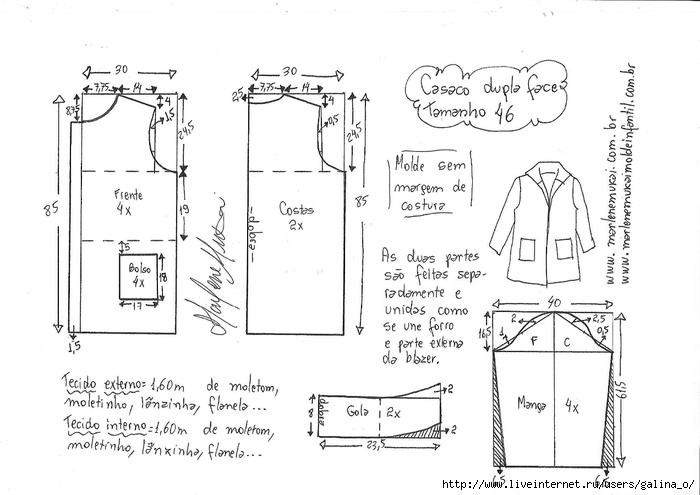 30
7,75
14
8,75
4
1,5
24,5
85
Frente
4x
19
5
Bolso
4x
18
17
1,5
30
2,5
7,75
14
4
0,5
24,5
Costas
2x
85
Casaco dupla face
Tamanho 46
Molde sem
margem de
costura
www.marlenemukai.com.br
www.marlenemukaimoldeinfantil.com.br
As duas partes
são feitas sepa-
radamente e
unidas como
se une forro
e parte externa
da blazer.
Tecido externo=1,60m de moletom,
moletinho, lãnzinha, flanela...
Tecido interno=1,60m de moletom,
moletinho, lãnzinha, flanela...
8
dobra
Gola 2x
2
2
23,5
40
16,5
2
2,5
1
0,5
F
C
Manga
4x
61,5
6,5
http://www.liveinternet.ru/users/galina_o/